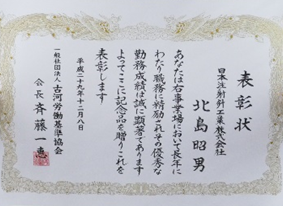 表彰状
日本注射針工業株式会社
北島昭男
あなたは右事業場において長年に
わたり職務に精励されその優秀な
勤務成績は誠に顕著であります
よってここに記念品を贈りこれを
表彰します
平成二十九年十二月八日
一般社団法人
古河労働基準協会
会長 斉藤一惠